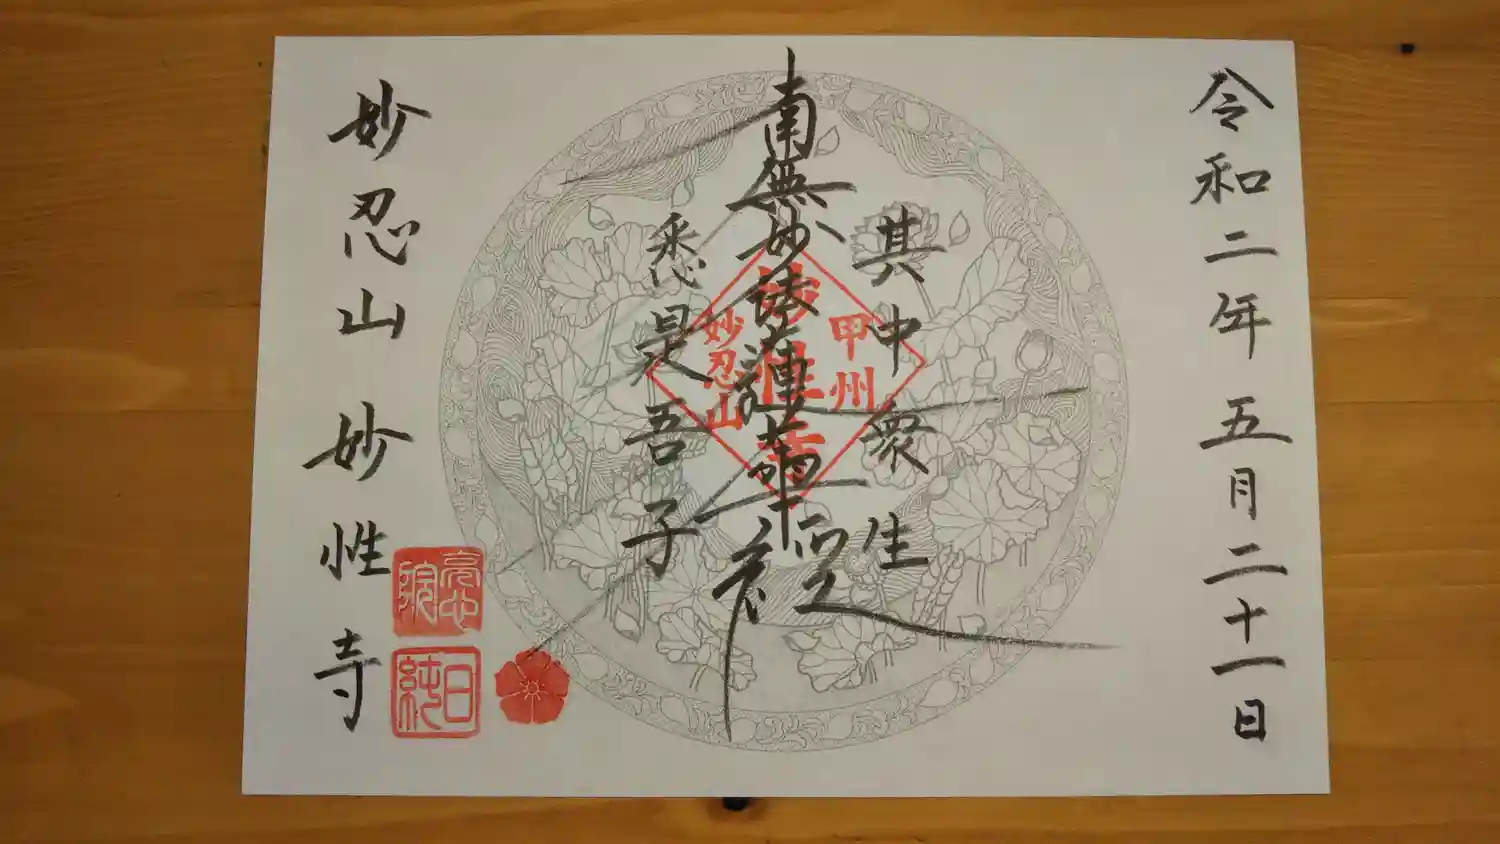 令和二年五月二十一日
其中衆生
南無妙法蓮華経
悉是吾子
甲州
妙性寺
妙忍山
妙忍山妙性寺
院
日純